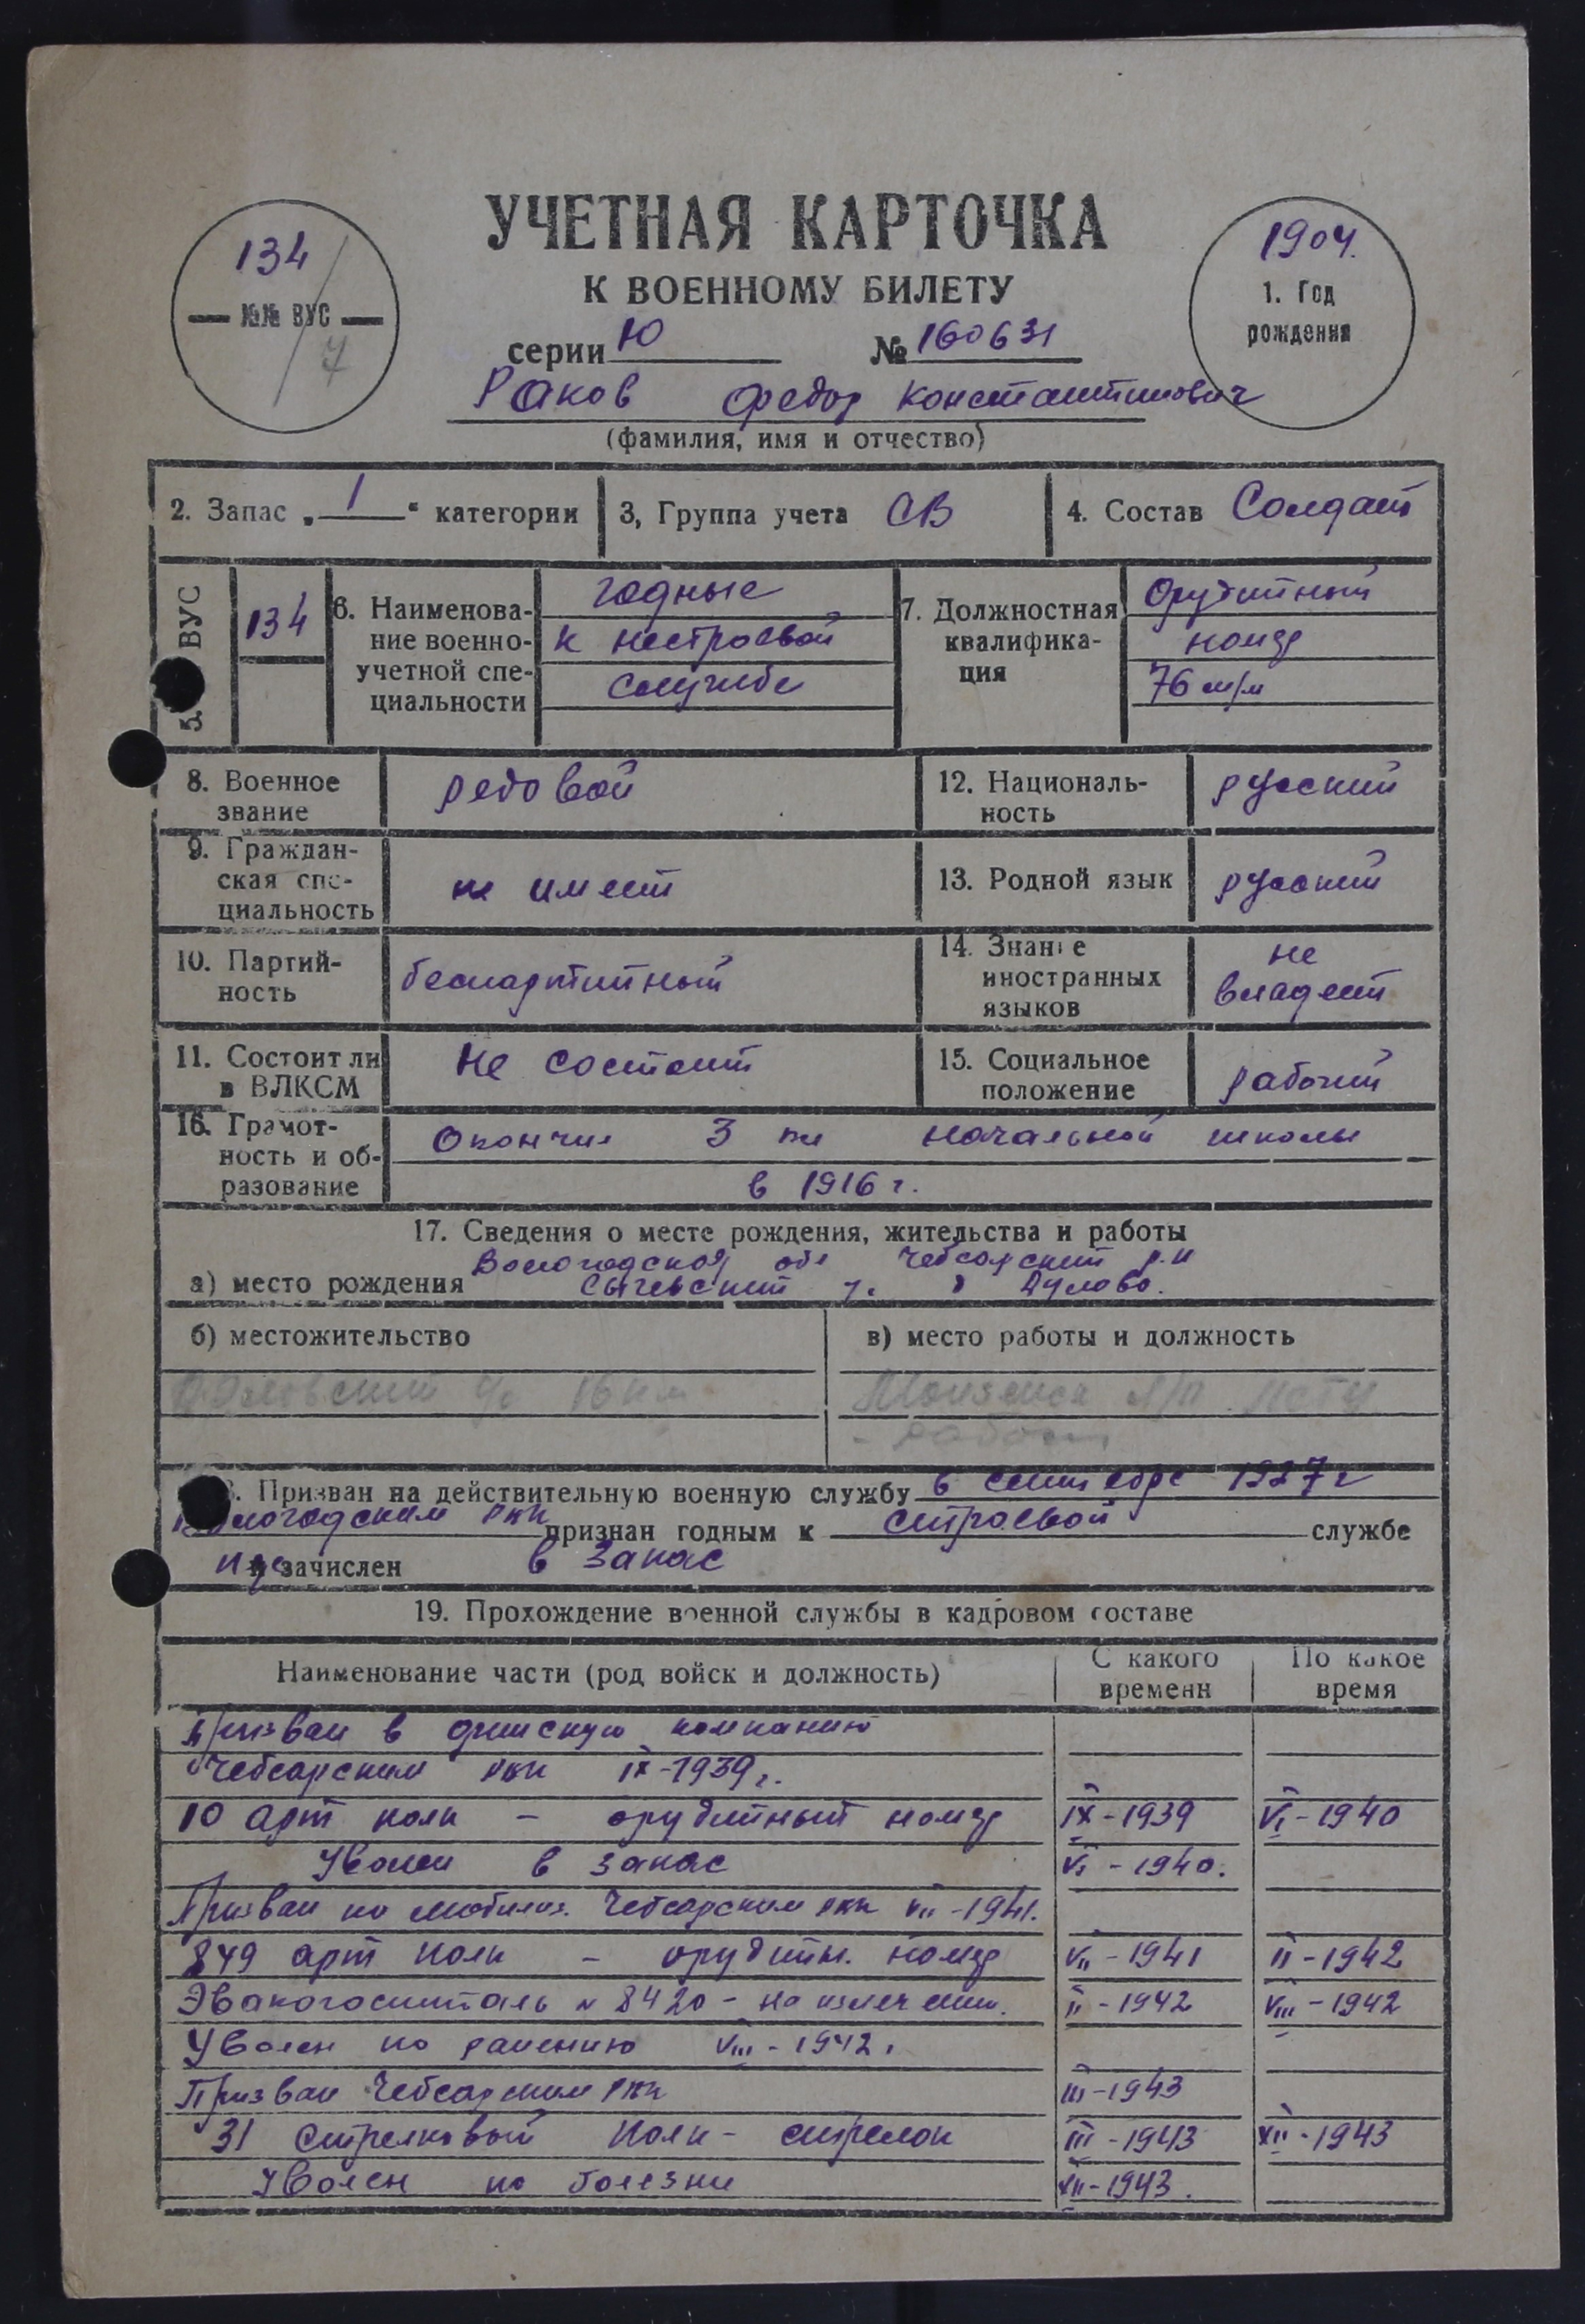 УЧЕТНАЯ КАРТОЧКА
К ВОЕННОМУ БИЛЕТУ
134
— №№ ВУС —
7
1904.
1. Год
рождения
серии Ю № 160631
Раков Федор Константинович
(фамилия, имя и отчество)
2. Запас „ 1 “ категории
3, Группа учета СВ
4. Состав Солдат
5. ВУС
134
6. Наименова-
ние военно-
учетной спе-
циальности
годные
к нестроевой
службе
7. Должностная
квалифика-
ция
Орудийный
номер
76 м/м
8. Военное
звание
редовой
12. Националь-
ность
русский
9. Граждан-
ская спе-
циальность
не имеет
13. Родной язык
русский
10. Партий-
ность
беспартийный
14. Знание
иностранных
языков
не
владеет
11. Состоит ли
в ВЛКСМ
Не состоит
15. Социальное
положение
рабочий
16. Грамот-
ность и об-
разование
Окончил 3 кл начальной школы
в 1916 г.
17. Сведения о месте рождения, жительства и работы
Вологодская обл Чебсарский р.н
а) место рождения Сычевский д Дулово.
б) местожительство
в) место работы и должность
16 км
18. Призван на действительную военную службу в сентябре 1927 г
Вологодским РВК признан годным к строевой службе
и зачислен в запас
19. Прохождение военной службы в кадровом составе
Наименование части (род войск и должность)
С какого
времени
По какое
время
Призван в финскую компанию
Чебсарским РВК IX-1939 г.
10 арт полк - орудийный номер IX-1939 VI-1940
Уволен в запас VI-1940.
Призван по мобилиз. Чебсарским РВК VII-1941.
849 арт полк - орудийн. номер VII-1941 II-1942
Эвакогоспиталь № 8420 - на излечении. II-1942 VIII-1942
Уволен по ранению VIII-1942.
Призван Чебсарским РВК III-1943
31 стрелковый полк - стрелок III-1943 XII-1943
Уволен по болезни XII-1943.